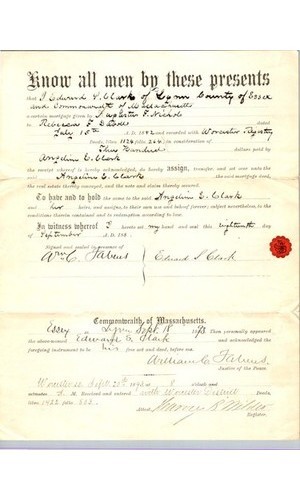 Know all men by these presents
that I Edward S. Clark of Lynn County of Essex
and Commonwealth of Massachusetts
a certain mortgage given by F. Nichols
to Rebecca F. dated
July 15th A.D. 1892 and recorded with Worcester Registry
Deeds, libro 1124 folio 246 in consideration of
Three Hundred dollars paid by
Angeline E. Clark
the receipt whereof is hereby acknowledged, do hereby assign, transfer, and set over unto the
said Angeline E. Clark the said mortgage deed,
the real estate thereby conveyed, and the note and claim thereby secured.
To have and to hold the same to the said Angeline E. Clark
her heirs, and assigns, to their own use and behoof forever; subject nevertheless, to the
conditions therein contained and to redemption according to law.
In witness whereof I hereto set my hand and seal this eighteenth day
of September A.D. 189
Signed and sealed in presence of
Wm. C. Fabens Edward S. Clark
Commonwealth of Massachusetts.
Essex Lynn Sept. 18 189 Then personally appeared
the above-named Edward S. Clark and acknowledged the
foregoing instrument to be his free act and deed, before me.
William C. Fabens
Justice of the Peace.
Worcester, ss. Sept. 8
A. M. Received and entered with Worcester District
Deeds, libro 1422 folio 552
Attest: Harvey B. Wilder
Register.